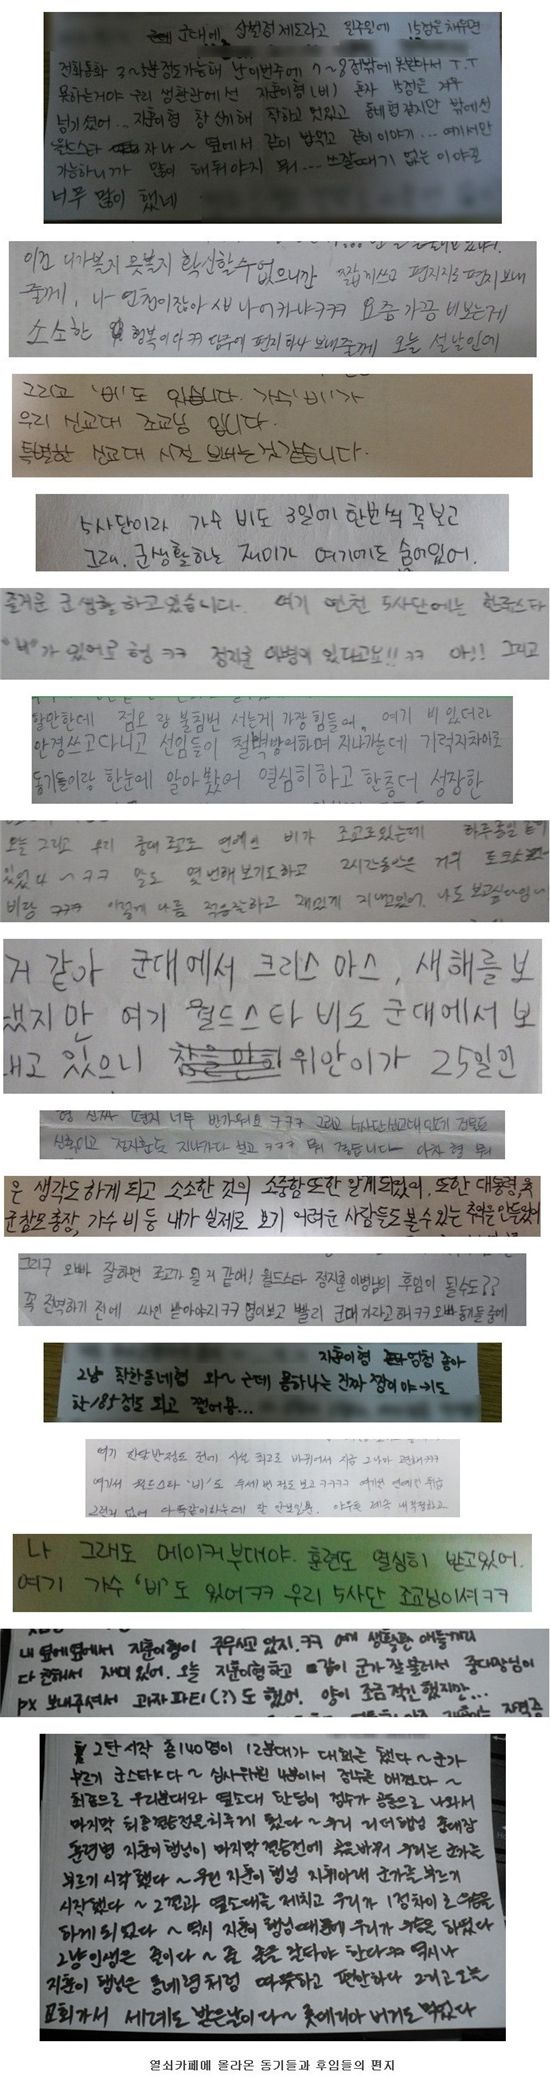 군대에 상벌점 제도라고 일주일에 15점을 채우면
전화통화 3~5분정도가능해 난 이번주에 7~8점밖에 못받아서 T.T
못하는거야 우리 생활관에선 지훈이형(비) 혼자 15점을 겨우
넘기셨어.. 지훈이형 항상 착하고 멋있고 동네형 같지만 밖에선
월드스타 자나~ 옆에서 같이 밥먹고 같이 이야기... 여기서만
가능하니까 많이 해둬야지 뭐... 쓰잘때기 없는 이야길
너무 많이 했네
이건 니가볼지 못볼지 확신할수없으니깐 짧게쓰고 편지지로 편지보내
줄게, 나 연천이잖아 나 어카냐ㅋㅋㅋ 요즘 가끔 비보는게
소소한 행복이다ㅋㅋ 담주에 편지 하나 보내줄께 오늘 설날인데
그리고 '비'도 있습니다. 가수'비'가
우리 신교대 조교님 입니다.
특별한 신교대 시절 보내는것 같습니다.
5사단이라 가수 비도 3일에 한번씩 꼭보고
그래. 군생활하는 재미가 여기에도 숨어있어.
즐거운 군생활하고있습니다. 여기 연천 5사단에는 한류스타
"비"가 있어요 형 ㅋㅋ 정지훈 이병이 있다고요!! ㅋㅋ 아!! 그리고
할만한데 점호랑 불침번 서는게 가장힘들어. 여기 비 있더라
안경쓰고다니고 선임들이 철벽방어하며 지나가는데 기럭지차이로
동기들이랑 한눈에 알아봤어 열심히하고 한층더 성장한
오늘 그리고 우리 중대 조교로 연예인 비가 조교로있는데 하루종일 같이
있었다~ㅋㅋ 말도 몇번해보기도하고 2시간동안은 거의 토크쇼
비랑 ㅋㅋㅋ 이렇게 나름 적응잘하고 재밌게 지내고있어. 나도 보고싶다
거 같아 군대에서 크리스마스, 새해를 보
냈지만 여기 월드스타 비도 군대에서 보
내고 있으니 위안이가 25일인
형 진짜 편지 너무 반가워요 ㅋㅋㅋ 그리고 5사단신교대인데 건물도
신축이고 정지훈도 지나가다 보고 ㅋㅋㅋ 뭐 좋습니다~ 아차 형 뭐
은 생각도하게 되고 소소한 것의 소중함 또한 알게되었어. 또한 대통령, 육
군참모총장, 가수 비 등 내가 실제로 보기 어려운 사람들도 볼수있는 추억을 만들었어
그리구 오빠 잘하면 조교가 될 거 같애! 월드스타 정지훈 이병님의 후임이 될수도??
꼭 전역하기 전에 싸인 받아야지ㅋㅋ 보고 빨리 군대 가라고해ㅋㅋ 오빠 동기들 중에
지훈이형 엄청 좋아
그냥 착한동네형 와~ 근데 몸하나는 진짜 짱이야 키도
한 185정도 되고 쩔어용...
여기 한달반정도 전에 시설 최고로 바뀌어서 시금 그나마 편해ㅋㅋㅋ
여기서 월드스타 '비'도 두세번정도 보고ㅋㅋㅋㅋ 여기선 연예인 취급
그런거 없어 다 똑같이하는데 잘 안보일뿐. 아무튼 계속 내걱정하고
나 그래도 메이커부대야. 훈련도 열심히 받고있어.
여기 가수 '비'도 있어ㅋㅋ 우리 5사단 조교님이셔ㅋㅋ
내 옆에옆에서 지훈이형이 주무시고 있지.ㅋㅋ 여기 생활관 애들끼리
다 친해서 재미있어. 오늘 지훈이형하고 같이 군가 잘 불러서 중대장님이
px 보내주셔서 과자파티(?)도 했어. 양이 조금 적긴했지만...
2탄시작 총140명이 12분대가 대회를 했다~ 군가
부르기 군스타K다~ 심사위원 4분이서 점수를 매겼다~
최종으로 우리분대와 옆소대 한팀이 점수가 공동으로 나와서
마지막 최종결승전을 치루게 됐다~ 우리 리더햄님 중대장
훈련병 지훈이햄님이 마지막 결승전에 바꿔 우리는 군가를
부르기 시작했다~ 우린 지훈이햄님 지휘아래 군가를 부르기
시작했다~ 그결과 옆소대를 제치고 우리가 1점차이로 우승을
하게 되었다~ 역시 지훈이햄님때문에 우리가 우승을 하였다
그냥 인생은 줄이다~ 줄 줄을 잘타야 한다ㅋㅋ 역시나
지훈이 햄님은 동네형처럼 따뜻하고 편안하다 그리고 오늘
교회가서 세례도 받은날이다~ 롯데리아 버거도 먹었다
열쇠카페에 올라온 동기들과 후임들의 편지